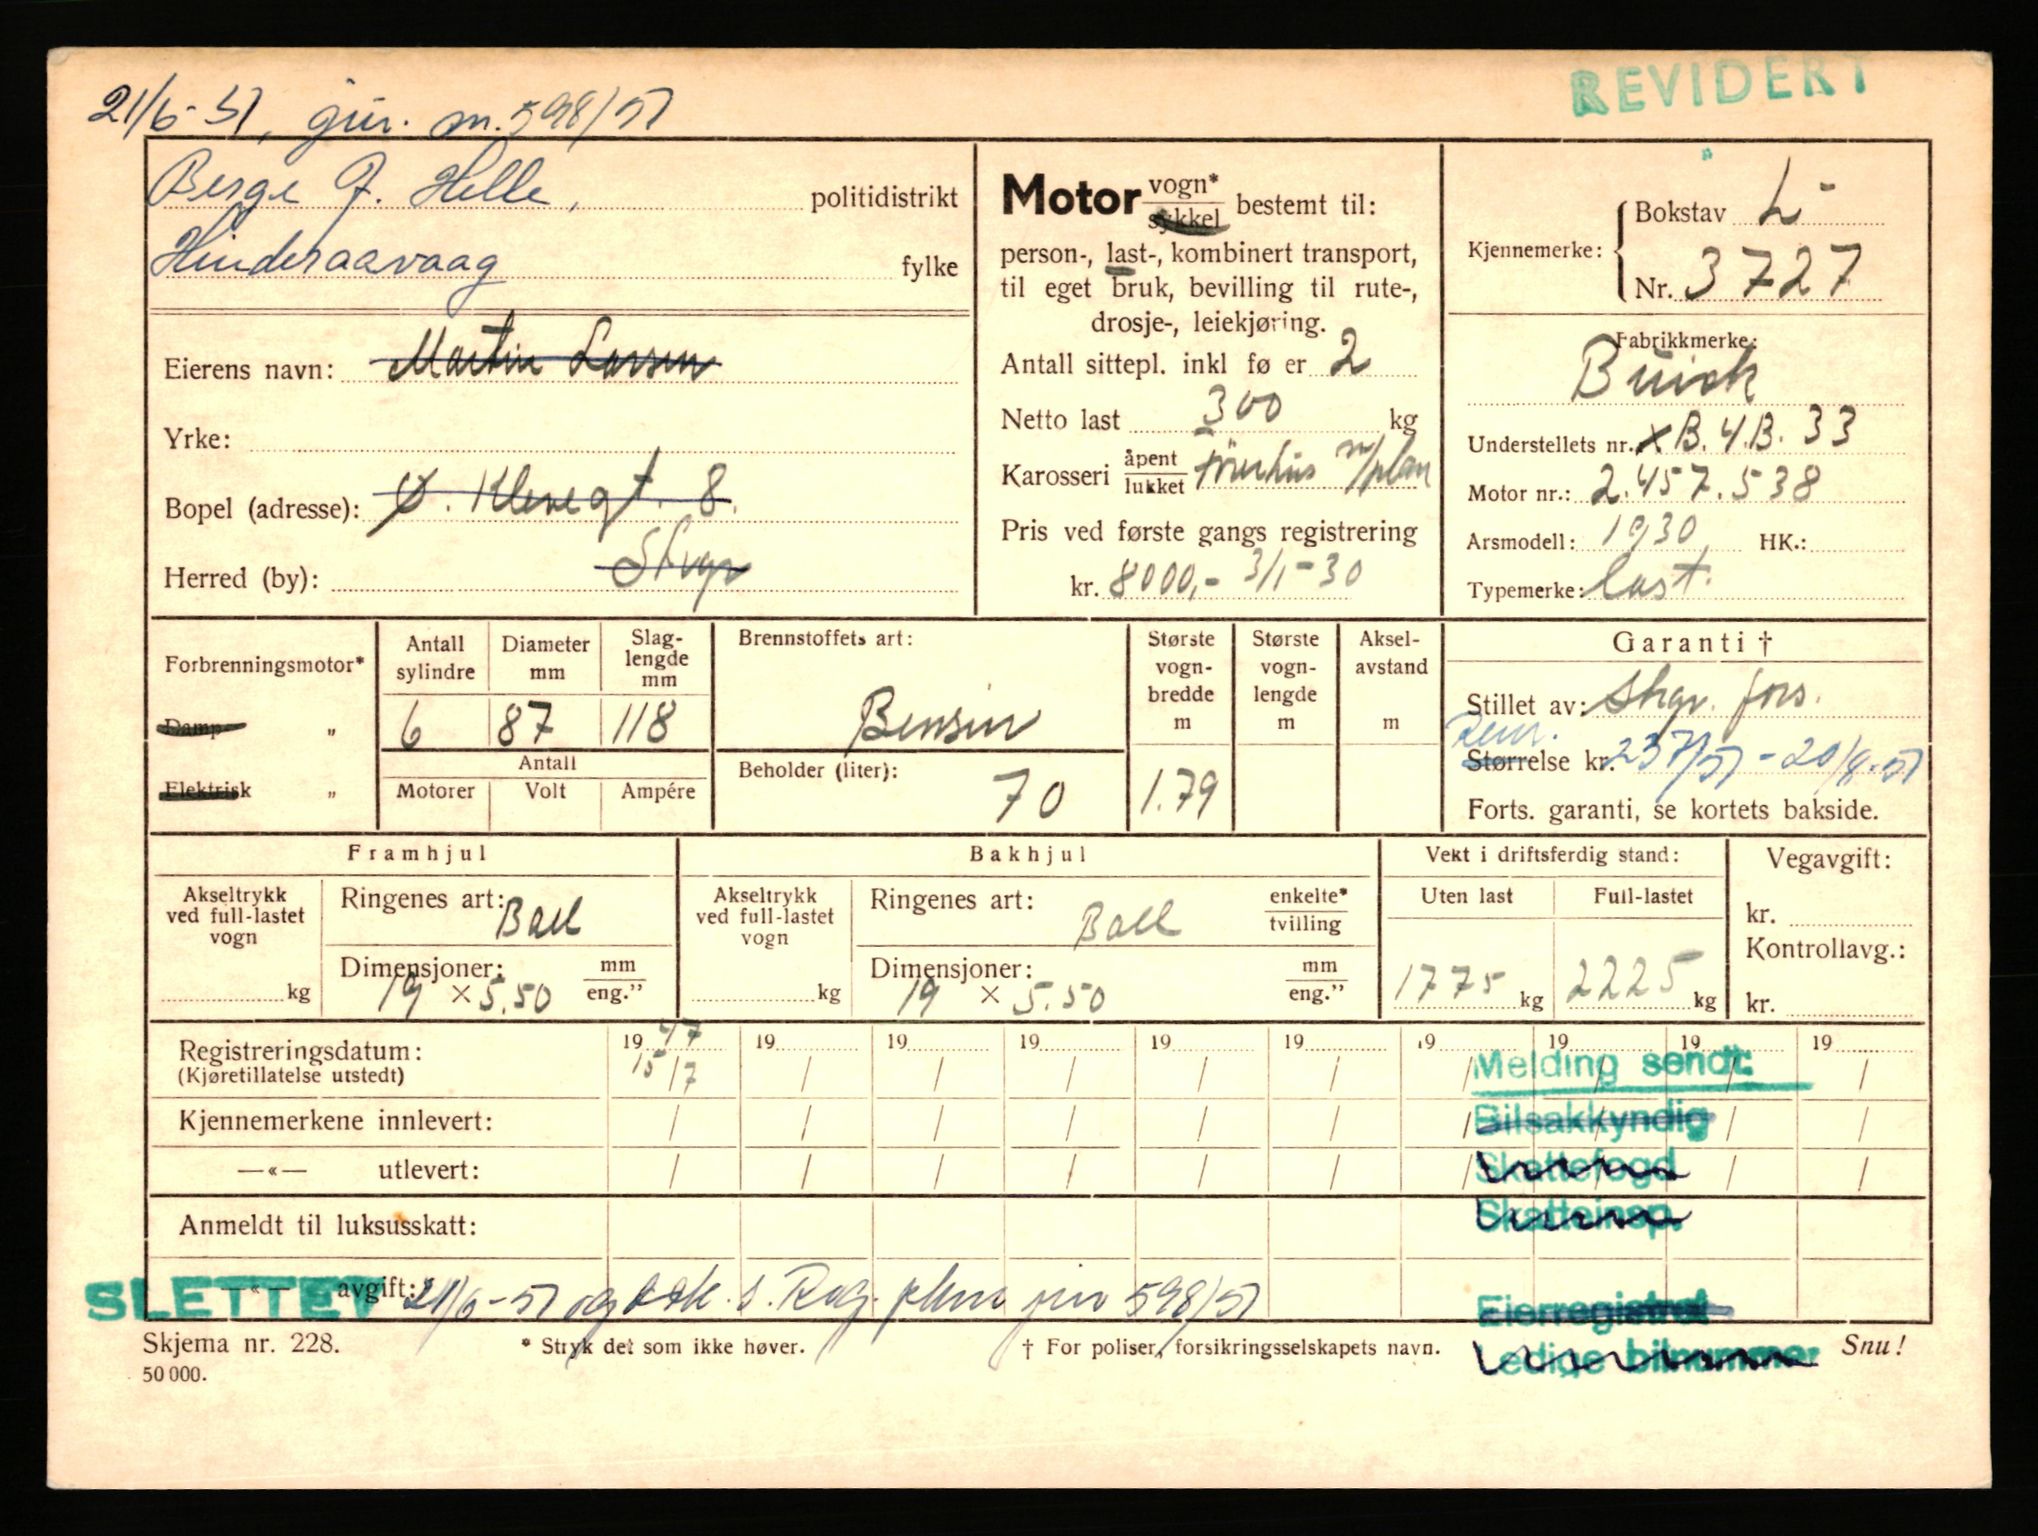 REVIDERT
21/6-51, jnr. 598/51
Berge J. Helle, politidistrikt
Hinderaavaag fylke
Eierens navn: Martin Larsen
Yrke:
Bopel (adresse): Ø. Klevegt. 8.
Herred (by): Stvgr
Motor vogn* sykkel bestemt til:
person-, last-, kombinert transport,
til eget bruk, bevilling til rute-,
drosje-, leiekjøring.
Antall sittepl. inkl fø er 2
Netto last 300 kg
Karosseri åpent lukket førerhus m/plan
Pris ved første gangs registrering
kr. 8000,- 3/1-30
Kjennemerke: Bokstav L-
Nr. 3727
Fabrikkmerke:
Buick
Understellets nr. X B.4.B. 33
Motor nr.: 2.457.538
Arsmodell: 1930 HK.:
Typemerke: last.
Forbrenningsmotor*
Damp „
Elektrisk „
Antall sylindre
Diameter mm
Slag-lengde mm
6 87 118
Antall
Motorer Volt Ampére
Brennstoffets art:
Bensin
Beholder (liter):
70
Største vogn-bredde m
1.79
Største vogn-lengde m
Aksel-avstand m
Garanti †
Stillet av: Stvgr. fors.
Størrelse kr. 237/51 - 20/8-51
Forts. garanti, se kortets bakside.
Framhjul
Akseltrykk ved full-lastet vogn
kg
Ringenes art: Ball
Dimensjoner: mm eng.”
19 × 5.50
Bakhjul
Akseltrykk ved full-lastet vogn
kg
Ringenes art: Ball enkelte* tvilling
Dimensjoner: mm eng.”
19 × 5.50
Vekt i driftsferdig stand:
Uten last Full-lastet
1775 kg 2225 kg
Vegavgift:
kr.
Kontrollavg.:
kr.
Registreringsdatum: 1947 19 19 19 19 19 19 19 19 19
(Kjøretillatelse utstedt) 15/7 / / / / / / / / /
Kjennemerkene innlevert: / / / / / / / / / /
—«— utlevert: / / / / / / / / / /
Anmeldt til luksusskatt:
—«— avgift: 21/6-51 og 598/51
SLETTET
Melding sendt:
Bilsakkyndig
Skattefogd
Skatteinsp.
Eierregistret
Ledige bilnummer
Skjema nr. 228. * Stryk det som ikke høver. † For poliser, forsikringsselskapets navn. Snu!
50 000.